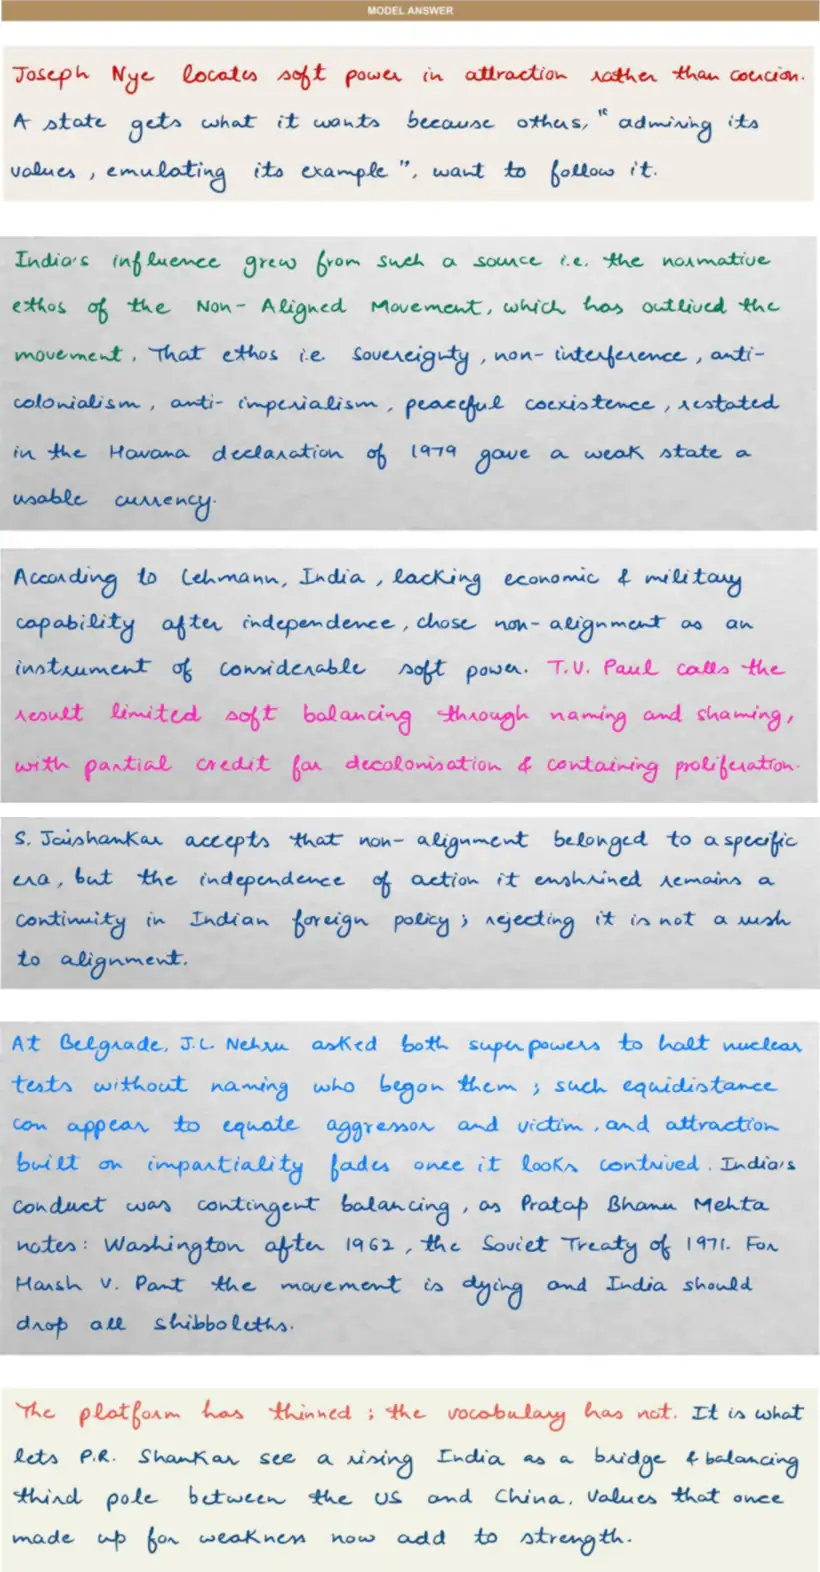 MODEL ANSWER
Joseph Nye locates soft power in attraction rather than coercion.
A state gets what it wants because others, "admiring its
values, emulating its example", want to follow it.
India's influence grew from such a source i.e. the normative
ethos of the Non-Aligned Movement, which has outlived the
movement. That ethos i.e sovereignty, non-interference, anti-
colonialism, anti-imperialism, peaceful coexistence, restated
in the Havana declaration of 1979 gave a weak state a
usable currency.
According to Lehmann, India, lacking economic & military
capability after independence, chose non-alignment as an
instrument of considerable soft power. T.V. Paul calls the
result limited soft balancing through naming and shaming,
with partial credit for decolonisation & containing proliferation.
S. Jaishankar accepts that non-alignment belonged to a specific
era, but the independence of action it enshrined remains a
continuity in Indian foreign policy; rejecting it is not a rush
to alignment.
At Belgrade, J.L. Nehru asked both superpowers to halt nuclear
tests without naming who began them; such equidistance
can appear to equate aggressor and victim, and attraction
built on impartiality fades once it looks contrived. India's
conduct was contingent balancing, as Pratap Bhanu Mehta
notes: Washington after 1962, the Soviet Treaty of 1971. For
Harsh V. Pant the movement is dying and India should
drop all shibboleths.
The platform has thinned; the vocabulary has not. It is what
lets P.R. Shankar see a rising India as a bridge & balancing
third pole between the US and China. Values that once
made up for weakness now add to strength.